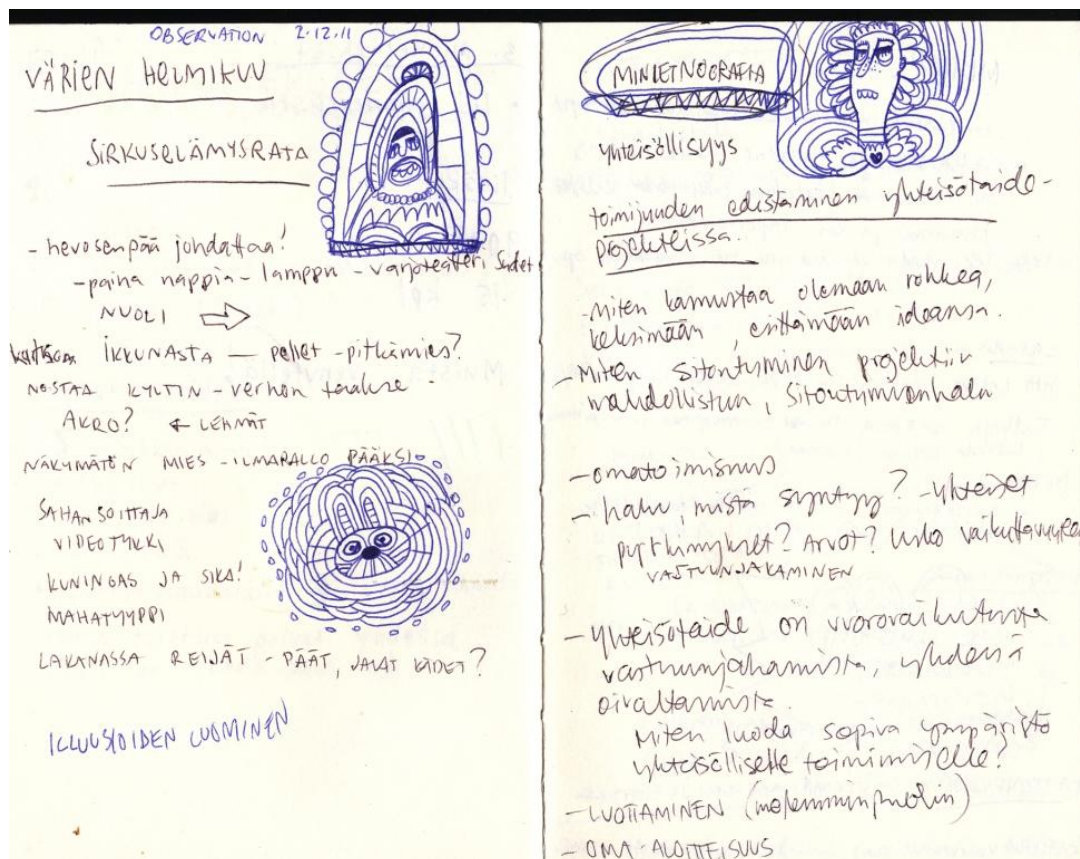 OBSERVATION 2.12.11
VÄRIEN HELMIKUU
SIRKUSELÄMYSRATA
- hevosenpää johdattaa!
- paina nappia - lamppu - varjoteatteri sudet
NUOLI
katsoa IKKUNASTA — pellet - pitkämies?
NOSTAA KYLTIN - verhon taakse
AKRO? ← LEHMÄT
NÄKYMÄTÖN MIES - ILMAPALLO PÄÄKSI
SAHANSOITTAJA
VIDEOTYKKI
KUNINGAS JA SIKA!
MAHATYYPPI
LAKANASSA REIJÄT - PÄÄT, JALAT KÄDET?
ILLUUSIOIDEN LUOMINEN
MINIETNOGRAFIA
yhteisöllisyys
toimijuuden edistäminen yhteisötaide-
projekteissa.
- miten kannustaa olemaan rohkea,
keksimään, esittämään ideansa.
- Miten sitoutuminen projektiin
mahdollistuu, sitoutumisenhalu
- omatoimisuus
- halu mistä syntyy? - yhteiset
pyrkimykset? Arvot? Usko
VASTUUNJAKAMINEN
- yhteisötaide on vuorovaikutusta
vastuunjakamista, yhdessä
oivaltamista.
Miten luoda sopiva ympäristö
yhteisölliselle toiminnalle?
- LUOTTAMINEN (molemminpuolin)
- OMA ALOITTEISUUS